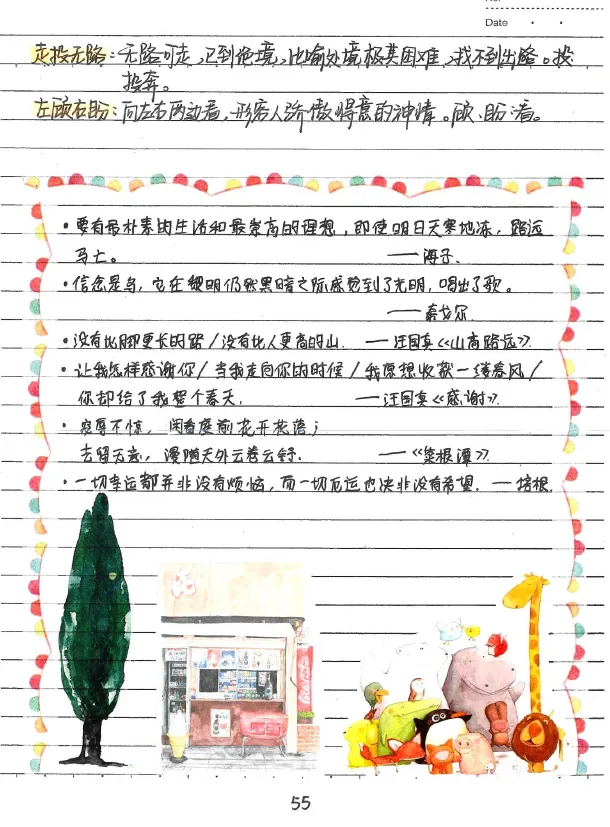 No.
Date
走投无路：无路可走，已到绝境，比喻处境极其困难，找不到出路。投：
投奔。
左顾右盼：向左右两边看，形容人骄傲得意的神情。顾、盼：看。
·要有最朴素的生活和最崇高的理想，即使明日天寒地冻，路远
马亡。 ——海子.
·信念是鸟，它在黎明仍然黑暗之际感觉到了光明，唱出了歌。
——泰戈尔.
·没有比脚更长的路/没有比人更高的山. ——汪国真《山高路远》.
·让我怎样感谢你/当我走向你的时候/我原想收获一缕春风/
你却给了我整个春天. ——汪国真《感谢》.
·宠辱不惊，闲看庭前花开花落；
去留无意，漫随天外云卷云舒. ——《菜根谭》.
·一切幸运都并非没有烦恼，而一切厄运也决非没有希望. —培根.
55